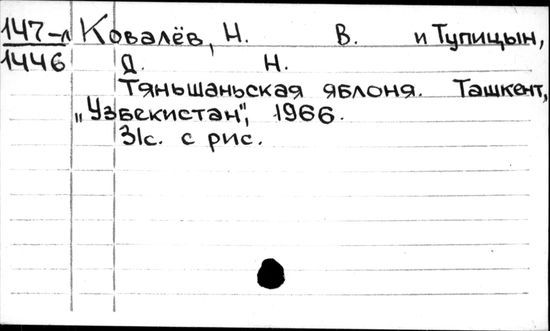 147-л Ковалёв, Н. В. и Тупицын,
1446 Д. Н.
Тяньшаньская яблоня. Ташкент,
„Узбекистан", 1966.
31с. с рис.